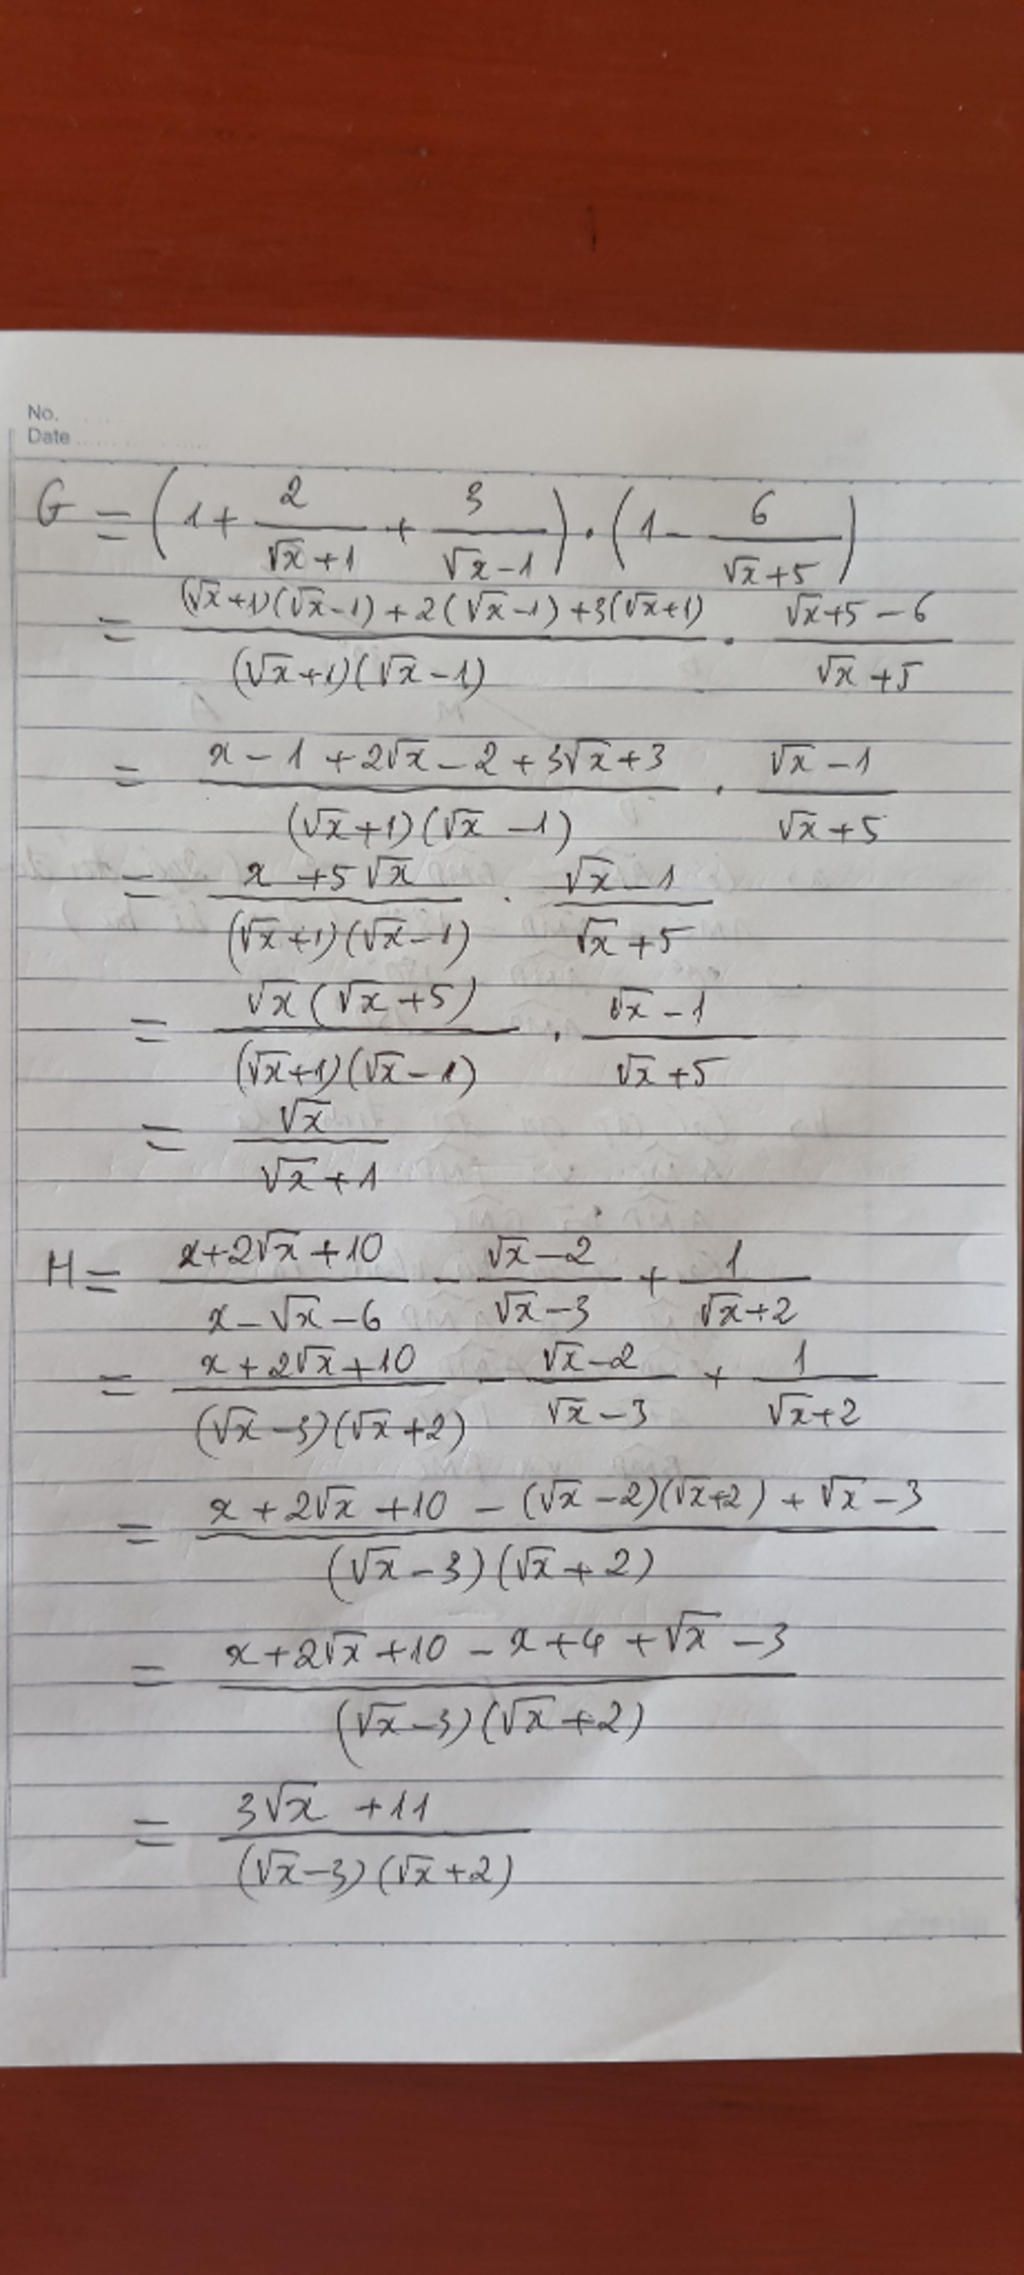 No.
Date
G = (1 + 2/(√x + 1) + 3/(√x - 1)) · (1 - 6/(√x + 5))
= ((√x + 1)(√x - 1) + 2(√x - 1) + 3(√x + 1))/((√x + 1)(√x - 1)) · (√x + 5 - 6)/(√x + 5)
= (x - 1 + 2√x - 2 + 3√x + 3)/((√x + 1)(√x - 1)) · (√x - 1)/(√x + 5)
= (x + 5√x)/((√x + 1)(√x - 1)) · (√x - 1)/(√x + 5)
= (√x(√x + 5))/((√x + 1)(√x - 1)) · (√x - 1)/(√x + 5)
= √x/(√x + 1)
H = (x + 2√x + 10)/(x - √x - 6) - (√x - 2)/(√x - 3) + 1/(√x + 2)
= (x + 2√x + 10)/((√x - 3)(√x + 2)) - (√x - 2)/(√x - 3) + 1/(√x + 2)
= (x + 2√x + 10 - (√x - 2)(√x + 2) + √x - 3)/((√x - 3)(√x + 2))
= (x + 2√x + 10 - x + 4 + √x - 3)/((√x - 3)(√x + 2))
= (3√x + 11)/((√x - 3)(√x + 2))